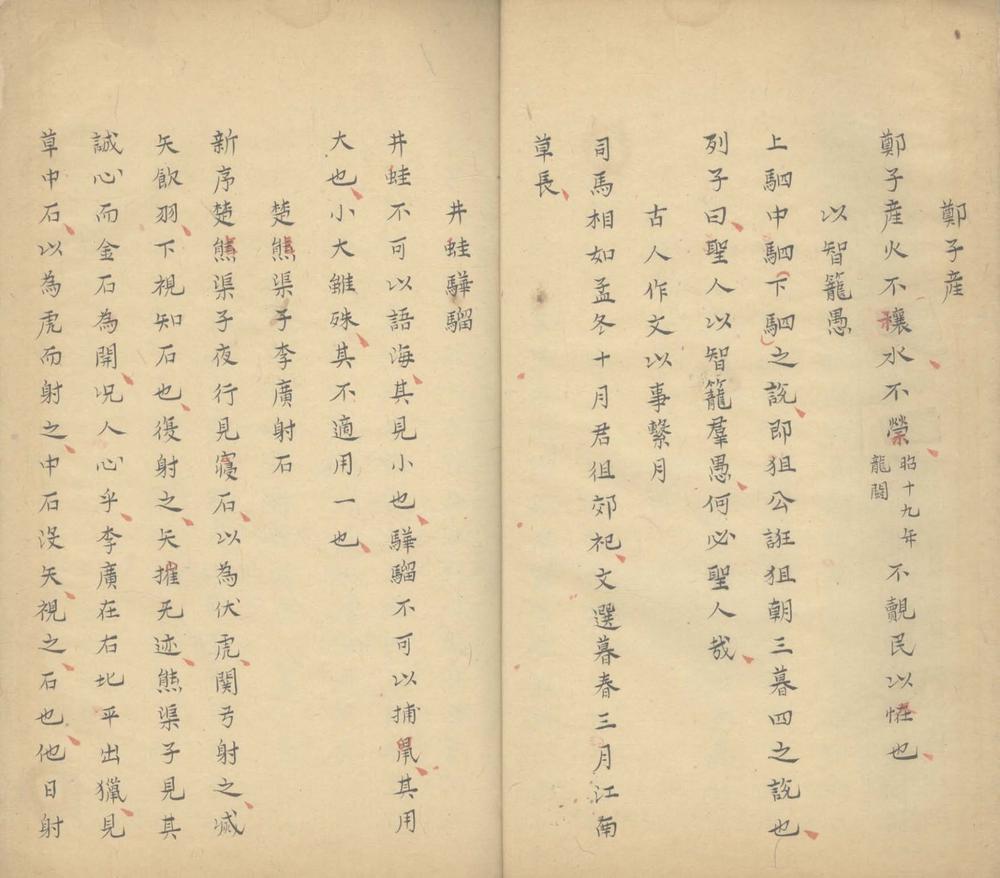 鄭子産
鄭子産火不禳水不禜昭十九年龍鬪不覿民以恠也
以智籠愚
上駟中駟下駟之説即狙公誑狙朝三暮四之説也
列子曰聖人以智籠羣愚何必聖人哉
古人作文以事繫月
司馬相如孟冬十月君徂郊祀文選暮春三月江南
草長
井蛙驊騮
井蛙不可以語海其見小也驊騮不可以捕鼠其用
大也小大雖殊其不適用一也
楚熊渠子李廣射石
新序楚熊渠子夜行見寢石以為伏虎関弓射之滅
矢飲羽下視知石也復射之矢摧无迹熊渠子見其
誠心而金石為開况人心乎李廣在右北平出獵見
草中石以為虎而射之中石没矢視之石也他日射